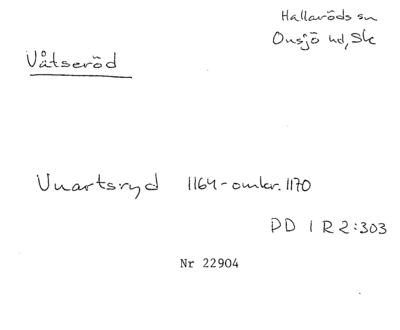 Hallaröds sn
Onsjö hd, Sk
Våtseröd
Vnartsryd 1164-omkr. 1170
DD I R 2:303
Nr 22904